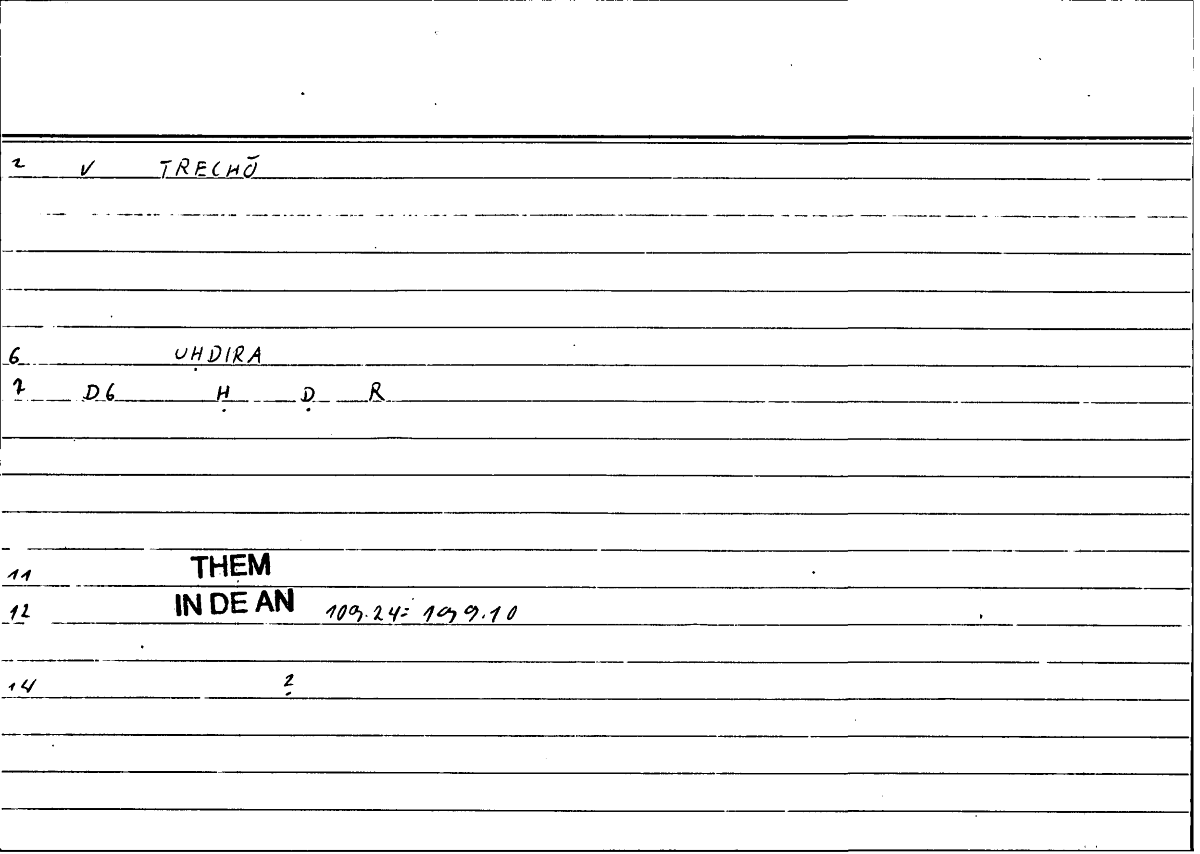 2 V TRECHŌ
6 UḤDIRA
7 D6 Ḥ Ḍ R
11 THEM
12 IN DE AN 109.24 = 199.10
14 2̣